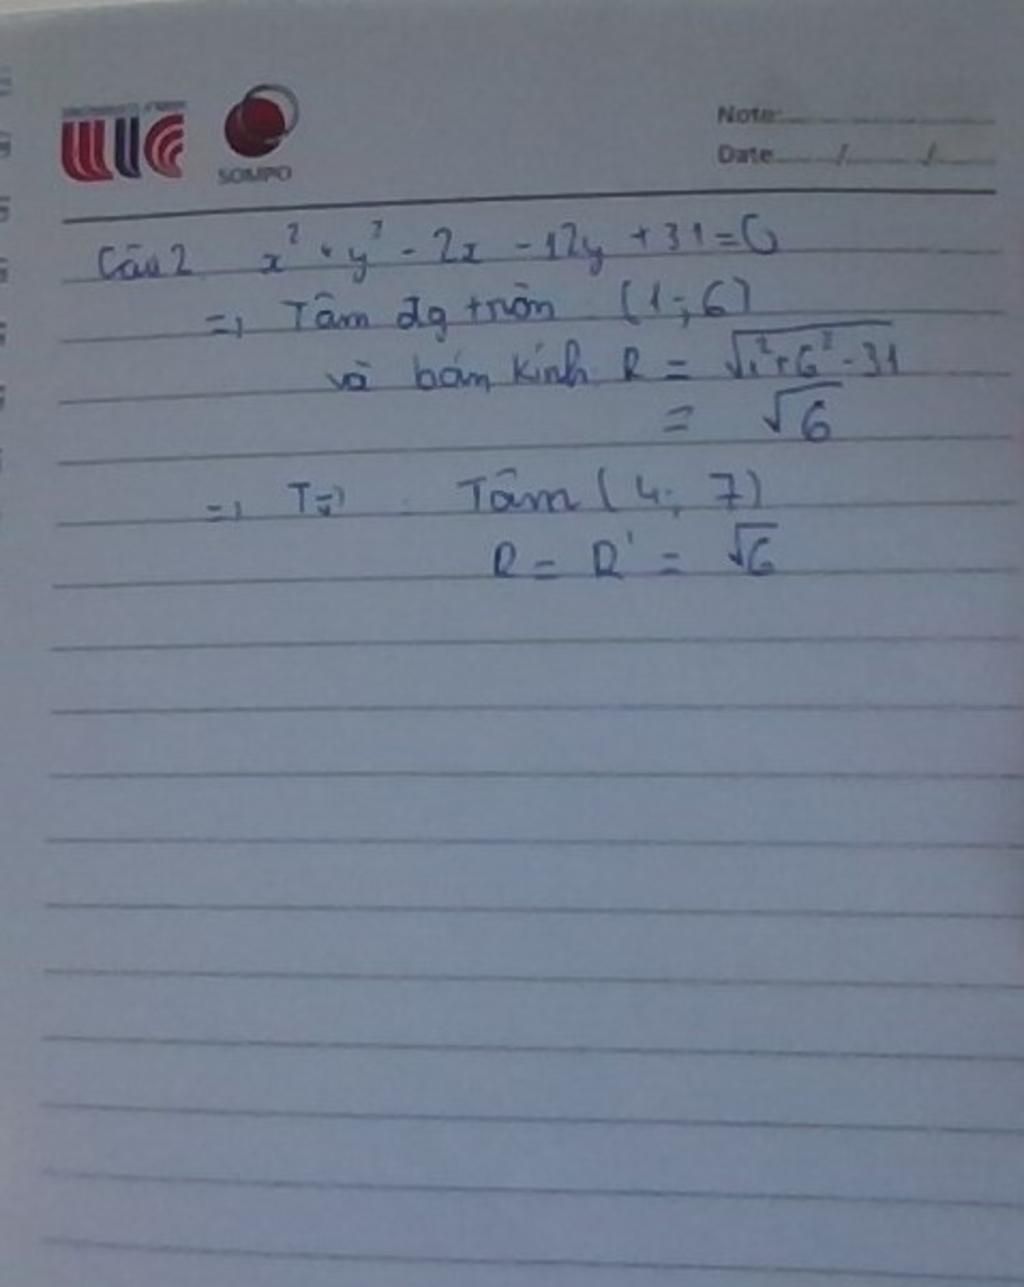 UIC
SOMPO
Note:
Date / /
Câu 2 x² + y² - 2x - 12y + 31 = 0
=> Tâm đg tròn (1; 6)
và bán kính R = √1² + 6² - 31
= √6
=> Tv⃗ Tâm (4; 7)
R = R' = √6